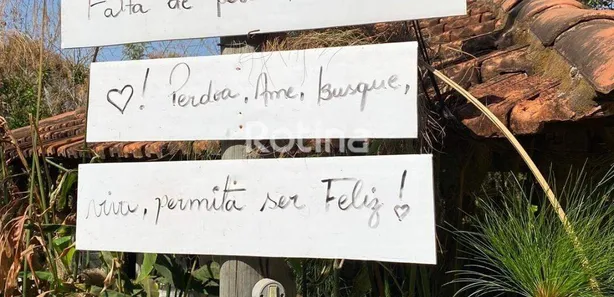 Falta de
♡! Perdoa, Ame, busque,
Rotina
viva, permita ser Feliz! ♡